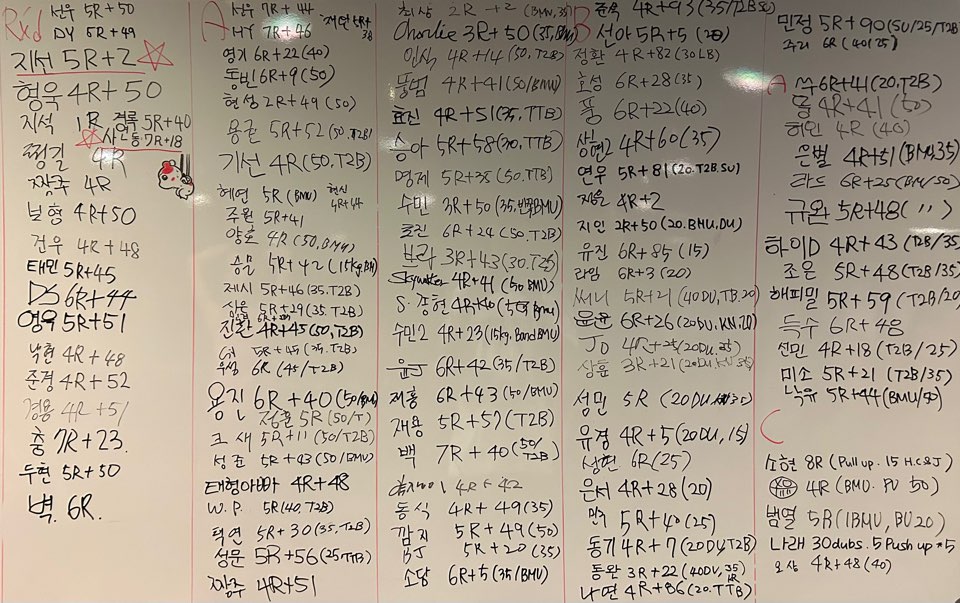 Rx'd
선우 5R+50
DY 5R+49
지선 5R+2
형욱 4R+50
지석 1R 경록 5R+40
사2동 7R+18
찡걸 4R
짱구 4R
보형 4R+50
건우 4R+48
태민 5R+45
DS 6R+44
영욱 5R+51
박현 4R+48
준경 4R+52
경용 4R+51
춤 7R+23
두현 5R+50
벽 6R
A
선우 7R+44
HY 7R+46
영기 6R+22 (40)
동빈 6R+9 (50)
현성 2R+49 (50)
용근 5R+52 (50, T2B)
기선 4R (50, T2B)
혜연 5R (BMU)
현신 4R+44
주원 5R+41
양호 4R (50, BMU)
승물 5R+42 (15kg, BM)
제시 5R+46 (35, T2B)
상윤 5R+29 (35, T2B)
진환 4R+45 (50, T2B)
5R+45 (35, T2B)
우성 6R (45/T2B)
용진 6R+40 (50/BMU)
정훈 5R (50/T)
크새 5R+11 (50/T2B)
성준 5R+43 (50/BMU)
태형아빠 4R+48
W.P. 5R (40, T2B)
택연 5R+30 (35, T2B)
성문 5R+56 (25 TTB)
찡주 4R+51
최상 2R+2 (BMU, 35)
Charlie 3R+50 (35, BMU)
인식 4R+14 (50, T2B)
뚱범 4R+41 (50/BMU)
효진 4R+51 (35, TTB)
승아 5R+58 (30, TTB)
명제 5R+38 (50, TTB)
수민 3R+50 (35, 반쪽BMU)
효진 6R+24 (50, T2B)
보라 3R+43 (30, T2B)
Skywalker 4R+41 (50 BMU)
S.종현 4R+40
수민2 4R+23 (15kg, Band BMU)
윤규 6R+42 (35/T2B)
재홍 6R+43 (50/BMU)
재용 5R+57 (T2B)
백 7R+40 (50/T2B)
4R+42
동식 4R+49 (35)
깜지 5R+49 (50)
BJ 5R+20 (35)
소당 6R+5 (35/BMU)
B
준욱 4R+93 (35/T2B SU)
선아 5R+5 (20)
정환 4R+82 (30LB)
호성 6R+28 (35)
풍 6R+22 (40)
상현2 4R+60 (35)
연우 5R+81 (20. T2B. SU)
지율 4R+2
지인 2R+50 (20. BMU, DU)
유진 6R+85 (15)
라임 6R+3 (20)
써니 5R+21 (40DU, TB, 20)
윤윤 6R+26 (20DU, KN, 20)
JD 4R+25 (20DU, 25)
상훈 3R+21
성민 5R
유경 4R+5 (20DU, 15)
성현 6R (25)
은서 4R+28 (20)
민주 5R+40 (25)
동기 4R+7 (20DU, T2B)
동완 3R+22 (40DU, 35 HR)
나연 4R+86 (20. TTB)
민정 5R+90 (SU/25/T2B)
주리 6R (40/25)
A
6R+41 (20, T2B)
동 4R+41 (50)
허민 4R (40)
은별 4R+51 (BMU, 35)
라드 6R+25 (BMU/50)
규완 5R+48 (〃)
하이D 4R+43 (T2B/35)
조은 5R+48 (T2B/35)
해피밀 5R+59 (T2B/20)
득수 6R+48
선민 4R+18 (T2B/25)
미소 5R+21 (T2B/35)
낙유 5R+44 (BMU/50)
C
소현 8R (Pull up. 15 H.C&J)
4R (BMU. PU 50)
범열 5R (1BMU, BU20)
나래 30dubs. 5 Push up *5
오상 4R+48 (40)